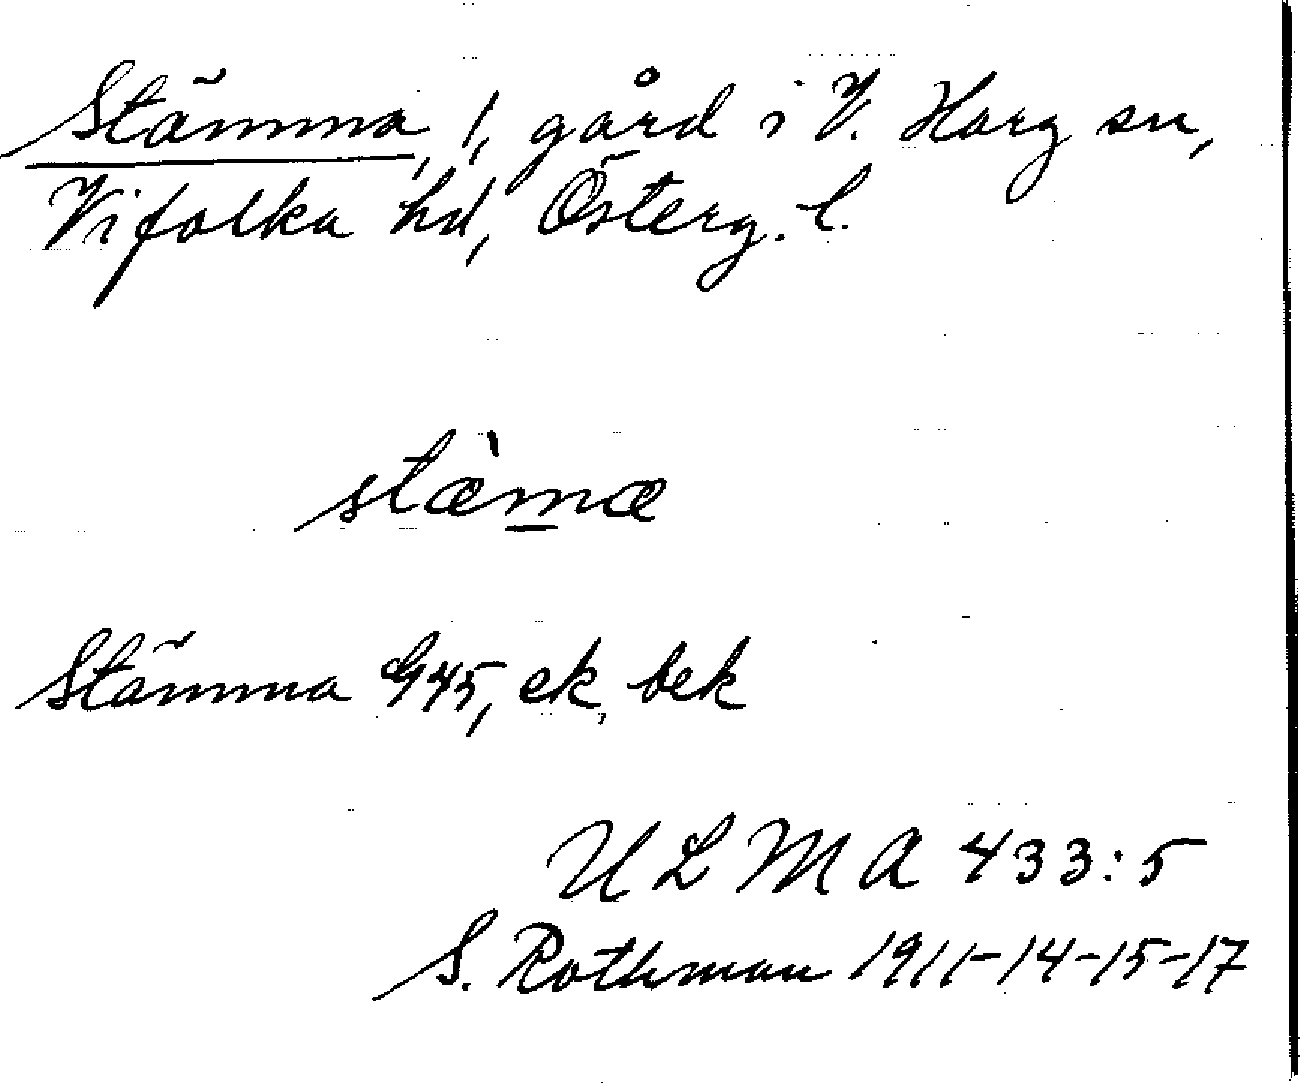 Stämma, 1, gård i V. Harg sn,
Vifolka hd, Österg. l.
stæ̀m̲æ
Stämma G45, ek, bek
ULMA 433:5
S. Rothman 1911-14-15-17